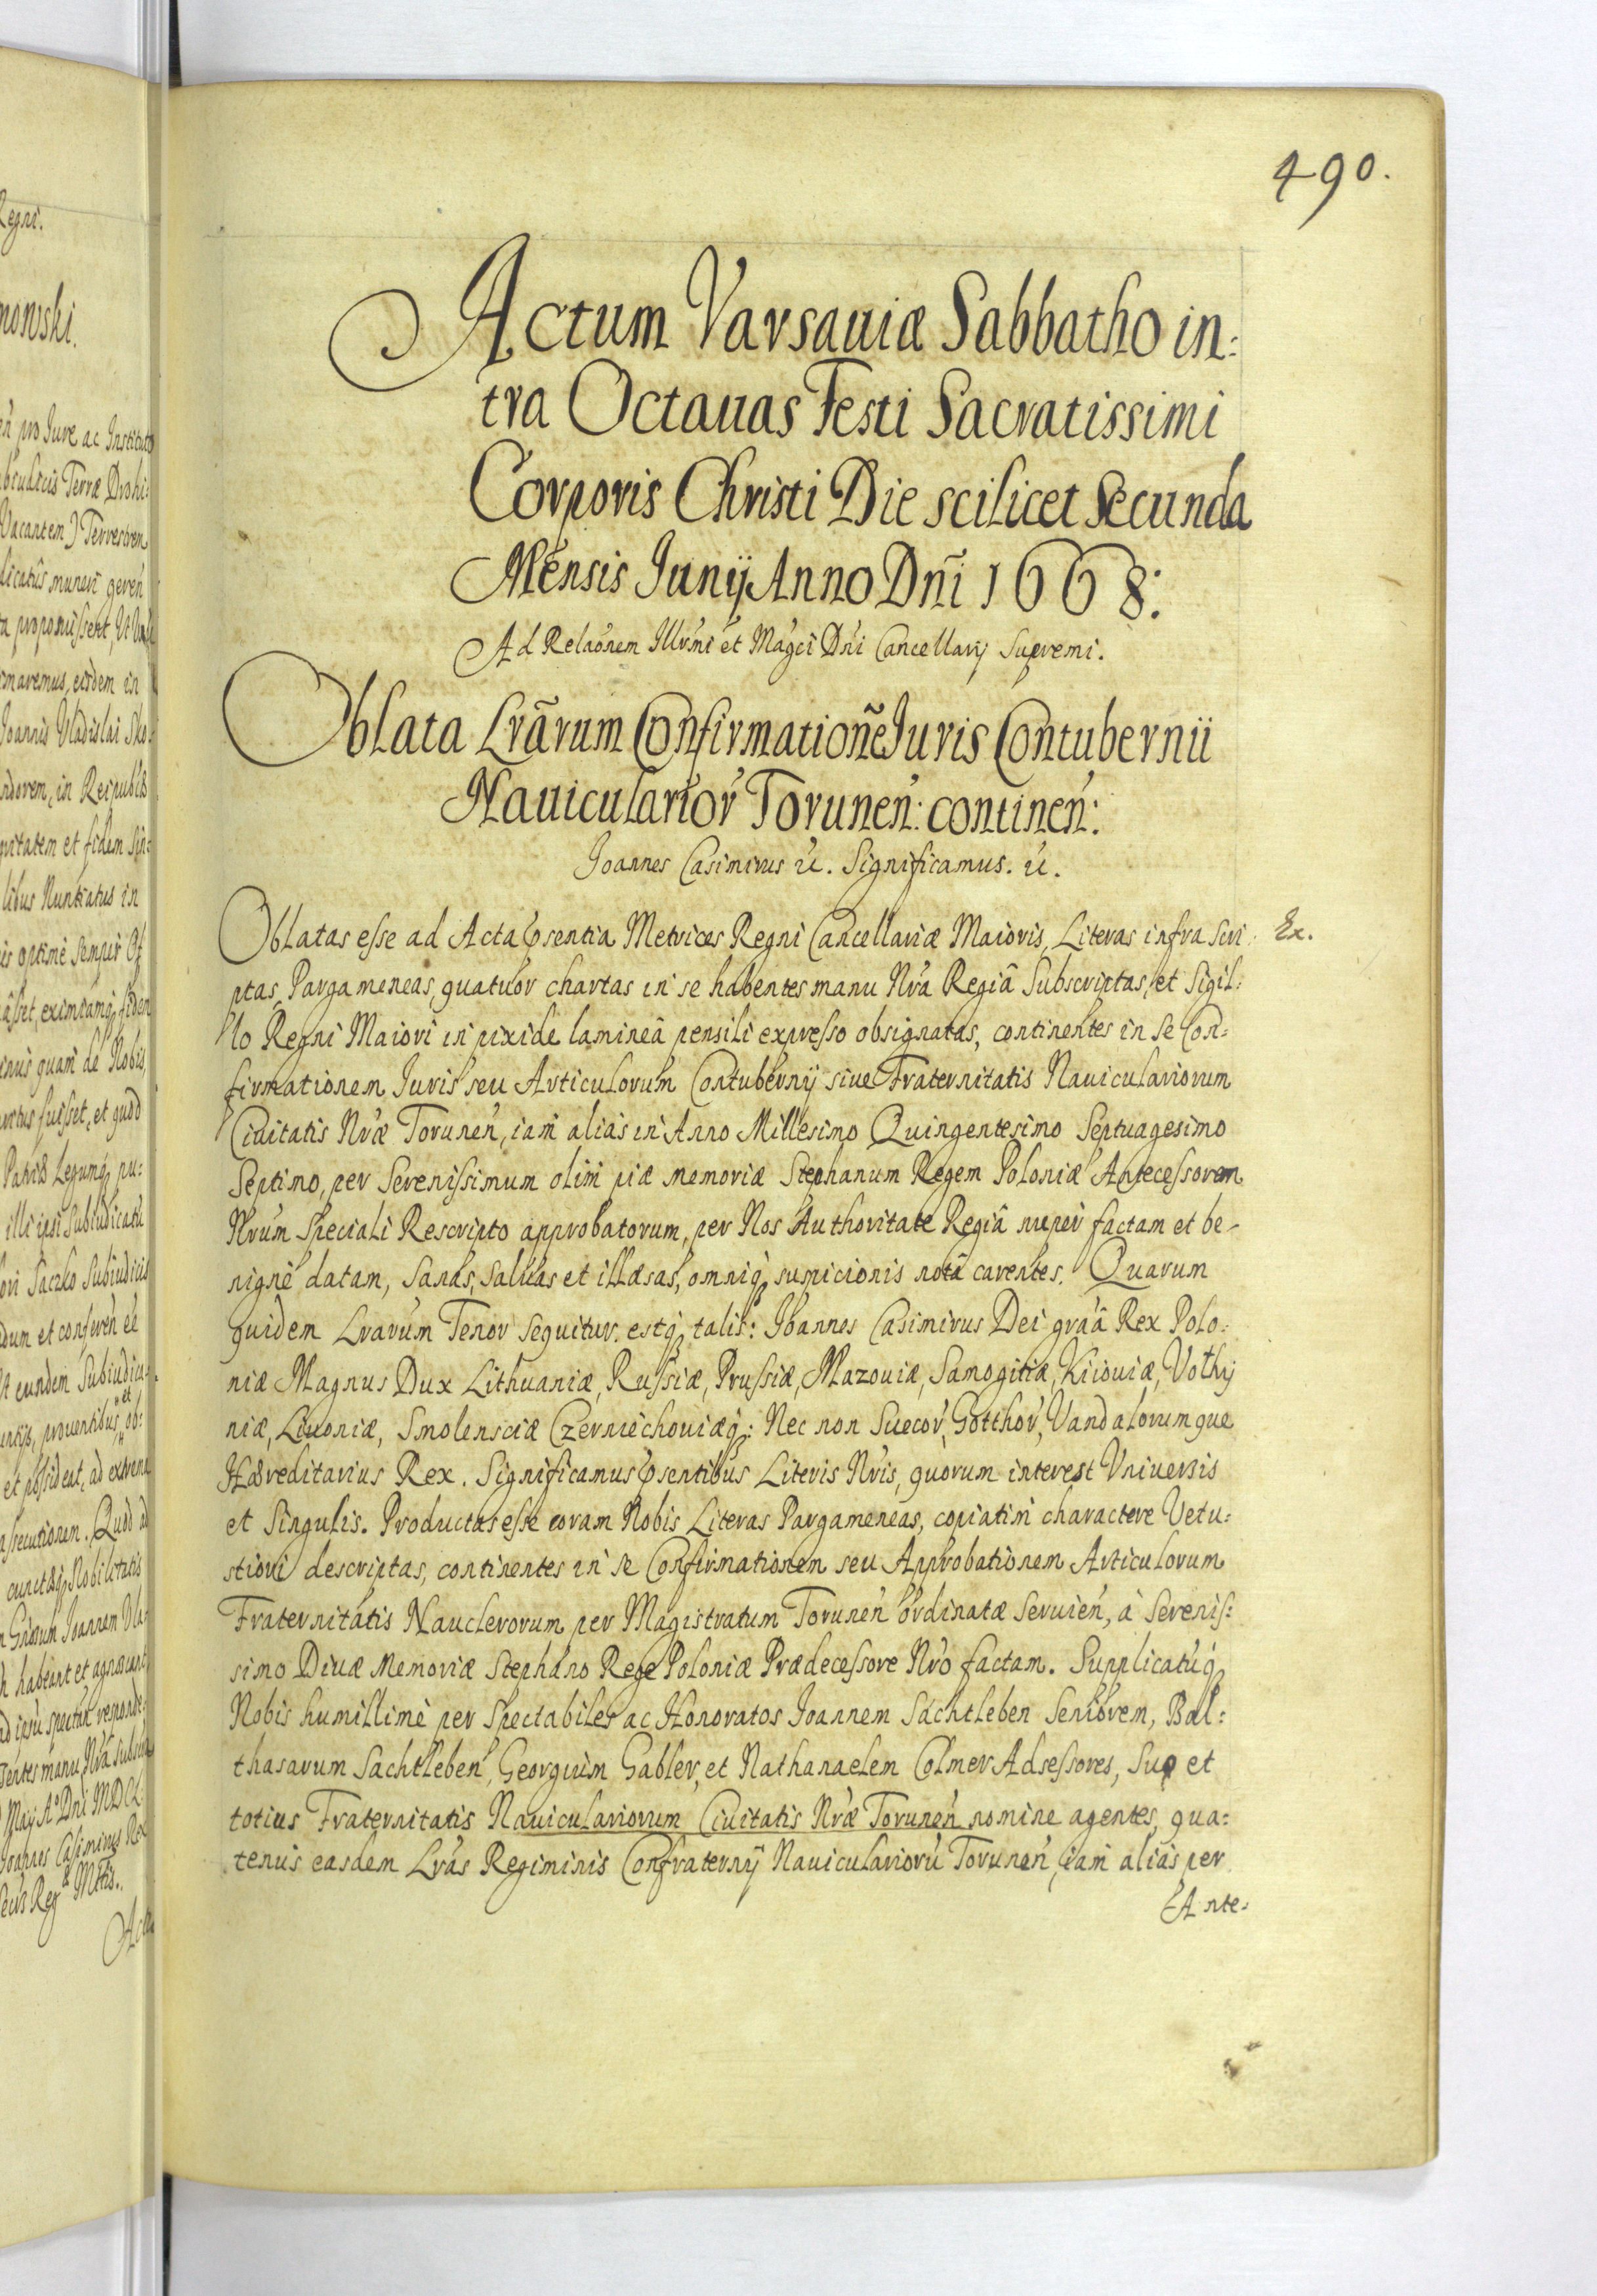 490.
Actum Varsauiæ Sabbatho in:
tra Octauas Festi Sacratissimi
Corporis Christi Die scilicet Secunda
Mensis Junij Anno Dñi 1668:
Ad Relaõnem Illrmi et Magci Dni Cancellarij Supremi.
Oblata Lrãrum Confirmationẽ Juris Contubernii
Nauicularior Torunen: continen:
Joannes Casimirus etc. Significamus. etc.
Oblatas esse ad Acta pñsentia Metrices Regni Cancellariæ Maioris, Literas infra Scri
Ex.
ptas Pargameneas, quatuor chartas in se habentes manu Nrã Regiâ Subscriptas, et Sigil:
lo Regni Maiori in pixide lamineâ pensili expresso obsignatas, continentes in se Con:
firmationem Juris seu Articulorum Contubernij siue Fraternitatis Nauiculariorum
Ciuitatis Nræ Torunen, iam aliàs in Anno Millesimo Quingentesimo Septuagesimo
Septimo, per Serenissimum olim piæ memoriæ Stephanum Regem Poloniæ Antecessorem
Nrum Speciali Rescripto approbatorum, per Nos Authoritate Regiâ nuper factam et be-
nignè datam, Sanas, Saluas et illæsas, omniq suspicionis notâ carentes. Quarum
quidem Lrarum Tenor sequitur. estq talis: Joannes Casimirus Dei graâ Rex Polo:
niæ Magnus Dux Lithuaniæ, Russiæ, Prussiæ, Mazouiæ, Samogitiæ, Kiiouiæ, Volhy
niæ, Liuoniæ, Smolensciæ Czerniechouiæq: Nec non Suecor, Gotthor, Vandalorumque
Hæreditarius Rex. Significamus pñsentibus Literis Nris, quorum interest Vniuersis
et Singulis. Productas esse coram Nobis Literas Pargameneas, copiatim charactere Vetu:
stiori descriptas, continentes in se Confirmationem seu Approbationem Articulorum
Fraternitatis Nauclerorum per Magistratum Torunen ordinatæ seruien, à Serenis:
simo Diuæ Memoriæ Stephano Rege Poloniæ Prædecessore Nro factam. Supplicatuq
Nobis humillimè per Spectabiles ac Honoratos Joannem Sachtleben Seniorem, Bal:
thasarum Sachtleben, Georgium Gabler, et Nathanaelem Colmer Adsessores, Suo et
totius Fraternitatis Nauiculariorum Ciuitatis Nræ Torunen nomine agentes, qua:
tenus easdem Lras Regiminis Confraternij Nauiculariorũ Torunen, iam aliàs per
Ante-